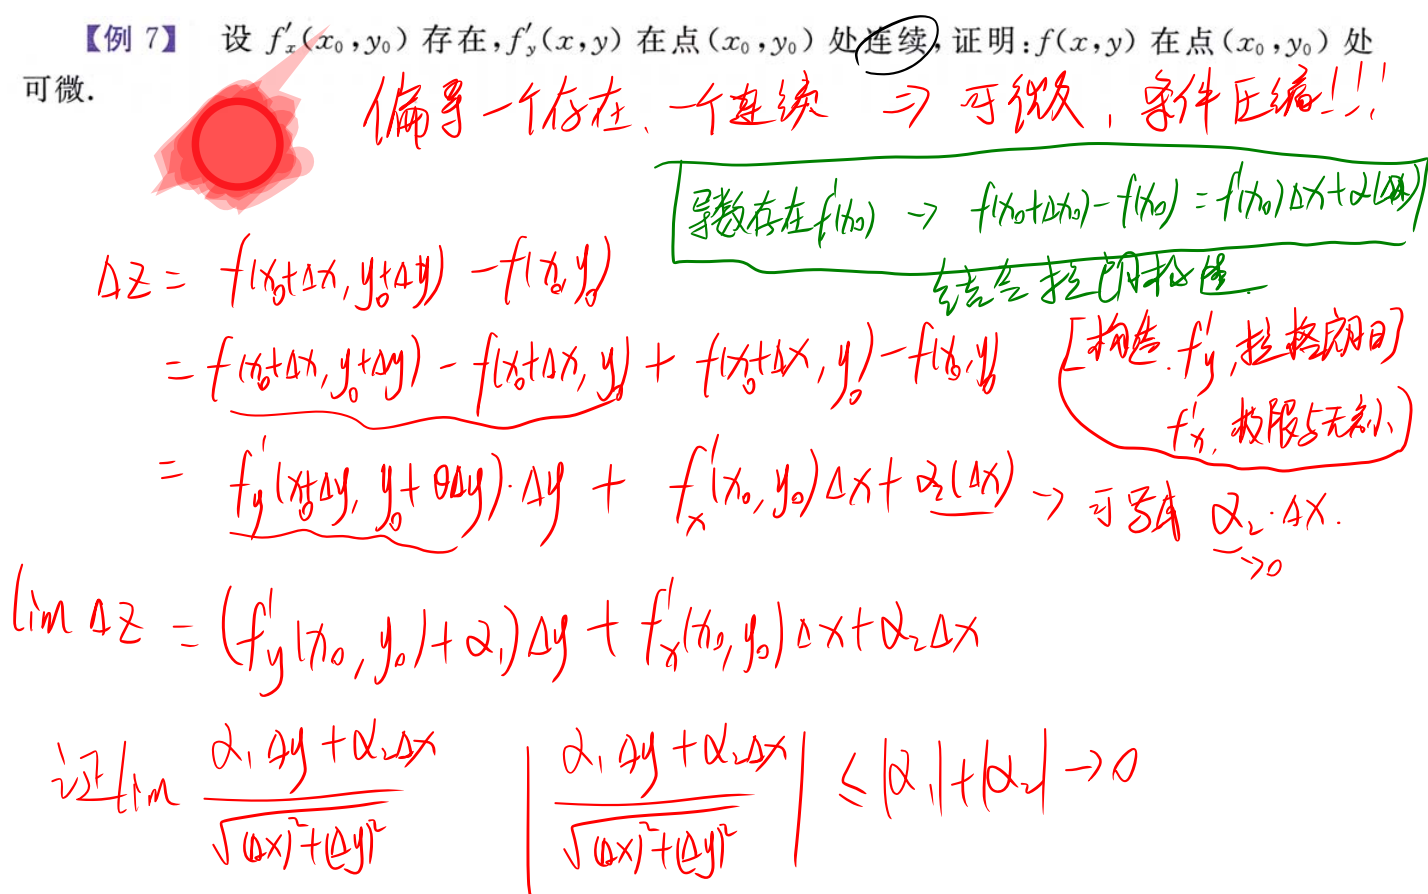 【例 7】 设 f′ₓ(x₀,y₀) 存在,f′ᵧ(x,y) 在点(x₀,y₀) 处连续,证明:f(x,y) 在点(x₀,y₀) 处
可微.
偏导一个存在、一个连续 ⇒ 可微,条件压缩!!!
导数存在f′(x₀) → f(x₀+Δx₀)-f(x₀)=f′(x₀)Δx+α(Δx)
结合拉朗格日
ΔZ = f(x₀+Δx, y₀+Δy) - f(x₀, y₀)
= f(x₀+Δx, y₀+Δy) - f(x₀+Δx, y₀) + f(x₀+Δx, y₀) - f(x₀, y₀)
[构造.f′ᵧ,拉格朗日]
f′ₓ,极限与无穷小)
= f′ᵧ(x₀+Δy, y₀+θΔy)·Δy + f′ₓ(x₀, y₀)Δx+α₂(Δx) → 可写成 α₂·Δx.
→0
lim ΔZ = (f′ᵧ(x₀, y₀)+α₁)Δy + f′ₓ(x₀, y₀)Δx+α₂Δx
证lim (α₁Δy+α₂Δx)/√((Δx)²+(Δy)²) |(α₁Δy+α₂Δx)/√((Δx)²+(Δy)²)| ≤ |α₁|+|α₂| → 0